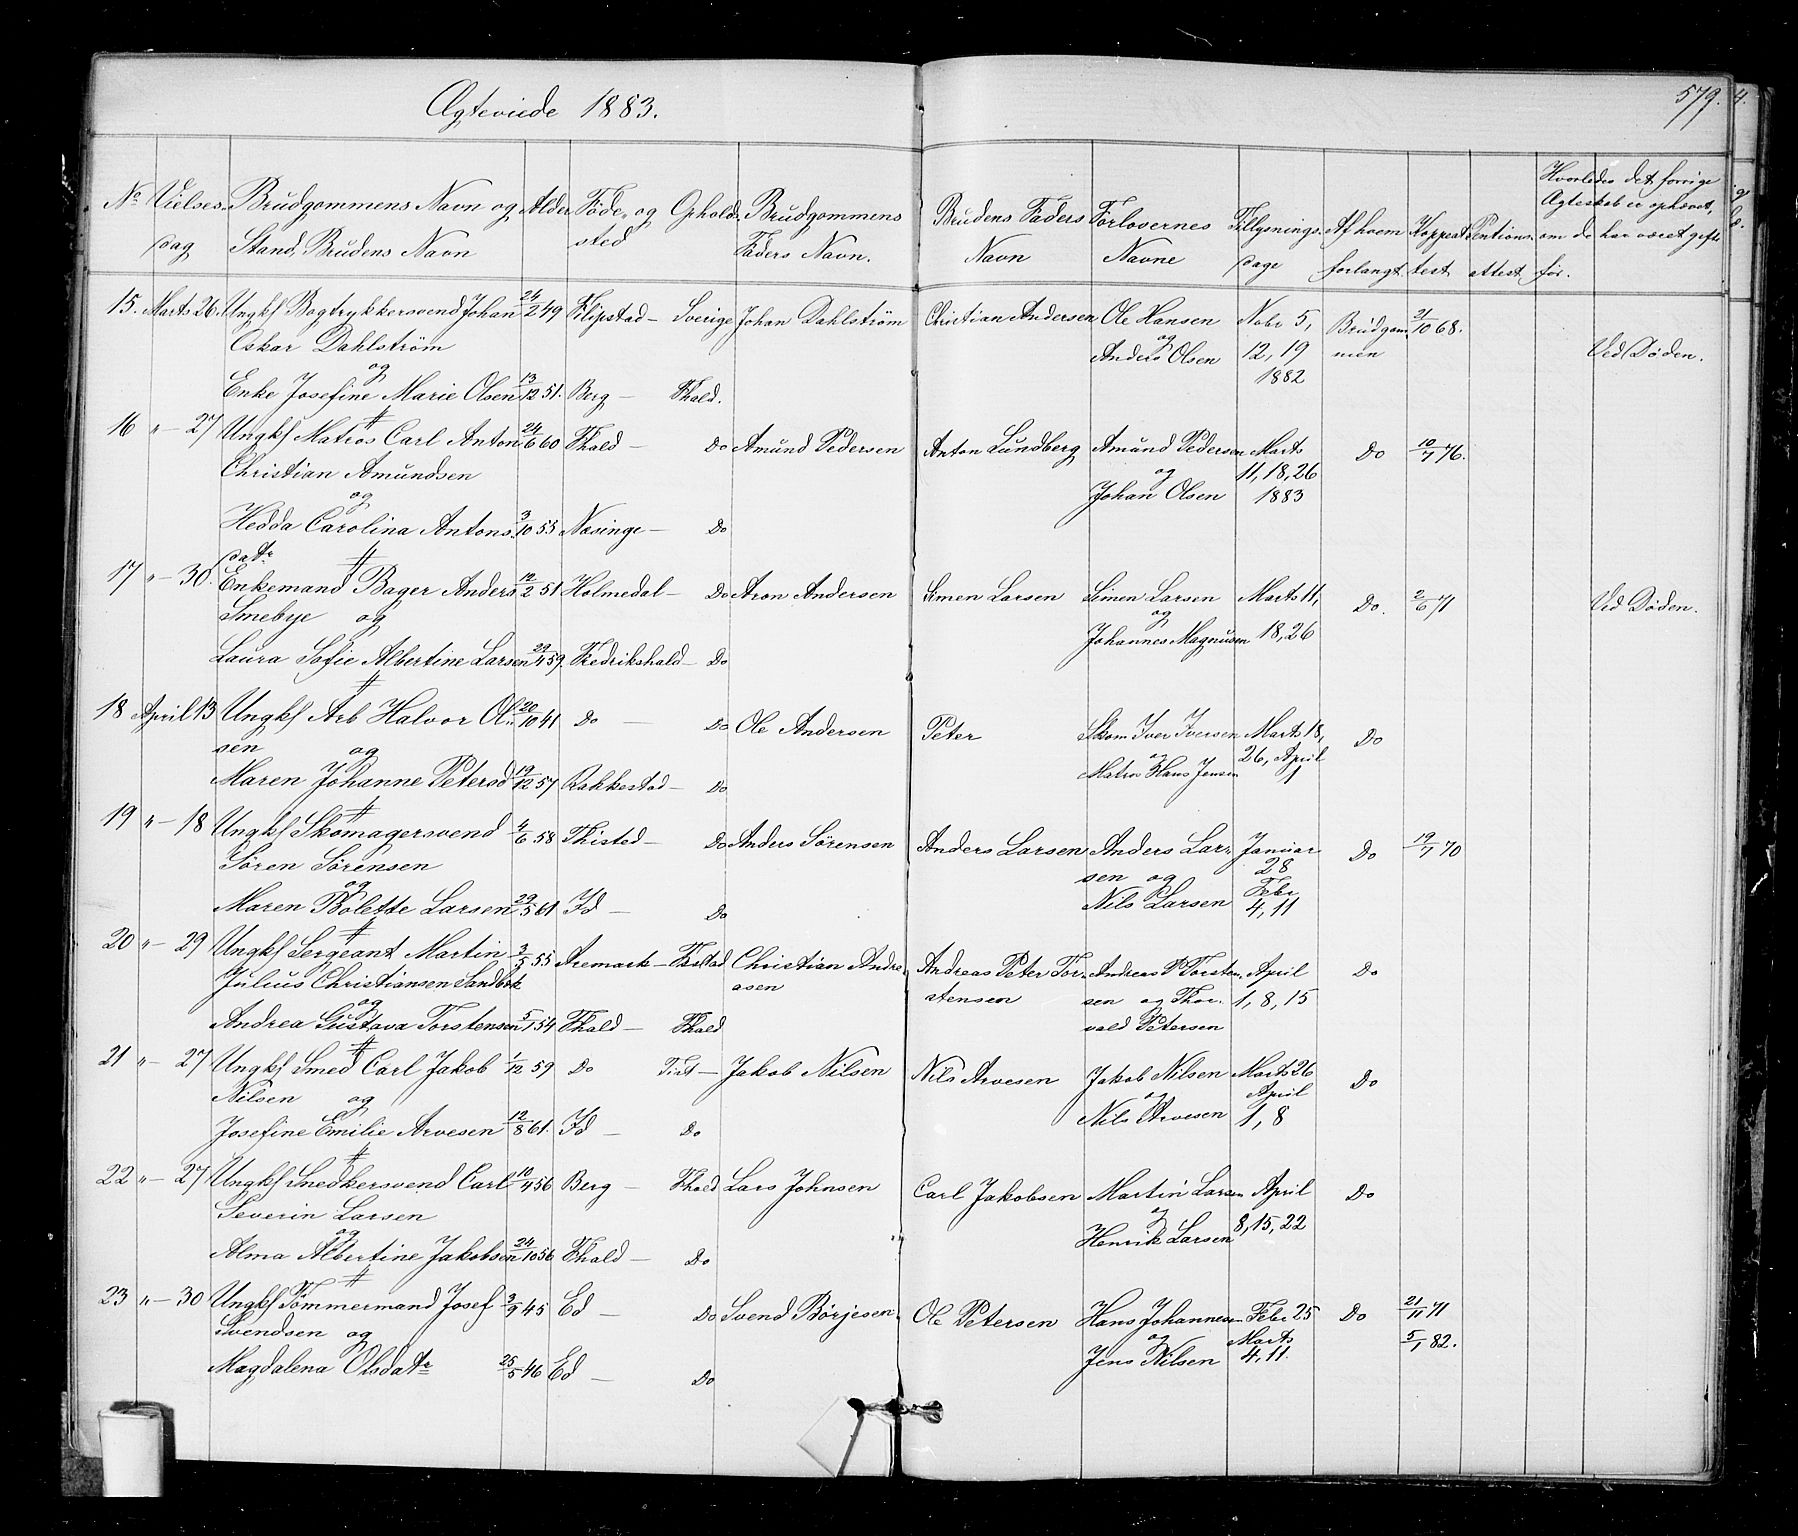 Ægteviede 1883.
579.
No Vielses Brudgommens Navn og Alder Föde- og Opholds Brudgommens Brudens Faders Forlovernes Tillysnings Af hvem Koppeat Hvorledes det forrige
dag Stand, Brudens Navn sted Faders Navn. Navn Navne dage forlangt. test. attest. Ægteskab er ophævet, om de har været gifte før.
15. Marts 26. Ungkf Bogtrykkersvend Johan 24/2 49 Flipstad - Sverige Johan Dahlström Christian Andersen Ole Hansen Nobr 5, Brudgom 21/10 68.
Oskar Dahlström og Anders Olsen 12, 19 men Ved Døden.
og 1882
Enke Josefine Marie Olsen 13/12 51. Berg - Fhald.
16 " - 27 Ungkf Matros Carl Anton 24/6 60 Fhald - Do Amund Pedersen Anton Lundberg Amund Pedersen Marts Do 10/7 76.
Christian Amundsen og 11, 18, 26
og Johan Olsen 1883
Hedda Carolina Antons 3/10 55 Næsinge - Do
datr
17 " - 30. Enkemand Bager Anders 12/2 51 Holmedal - Do Aron Andersen Simen Larsen Simen Larsen Marts 11, Do. 2/6 71 Ved Døden.
Smebye og og
Johannes Magnusen 18, 26
Laura Sofie Albertine Larsen 29/4 59. Fredrikshald - Do
18 April 13 Ungkf Arb Halvor Ol- 20/10 41 Do - Do Ole Andersen Peter Skom Iver Iversen Marts 18, Do
sen og og 26, April
Maren Johanne Petersd 19/12 57 Rakkestad - Do Matros Hans Jensen 1
19 " - 18 Ungkf Skomagersvend 4/6 58 Thisted - Do Anders Sörensen Anders Larsen Anders Lar- Januar Do 19/7 70
Sören Sörensen sen og 28
og Nils Larsen Febr
Maren Bolette Larsen 29/5 61 Id - Do 4, 11
20 " - 29 Ungkf Sergeant Martin 3/5 55 Aremark - Christian Andre Andreas Peter Tor- Andreas P Torsten- April Do
Julius Christiansen asen stensen sen og Thor- 1, 8, 15
og vald Petersen
Andrea Gustava Torstensen 5/1 54 Fhald - Fhald
21 " - 27 Ungkf Smed Carl Jakob 1/12 59 Do Jakob Nilsen Nils Arvesen Jakob Nilsen Marts 26 Do
Nilsen og og April
Josefine Emilie Arvesen 12/8 61. Id - Do Nils Arvesen 1, 8
22 " - 27 Ungkf Snedkersvend Carl 10/4 56 Berg - Fhald Lars Johnsen Carl Jakobsen Martin Larsen April Do
Severin Larsen og
og Henrik Larsen 8, 15, 22
Alma Albertine Jakobsen 24/10 56 Fhald - Do
23 " - 30 Ungkf Tømmermand Josef 3/9 45 Ed - Do Svend Börjesen Ole Petersen Hans Johannesen Febr 25 Do 21/11 71
Svendsen og og Marts 5/1 82.
Magdalena Olsdatr 25/5 46 Ed - Do Jens Nilsen 4, 11.